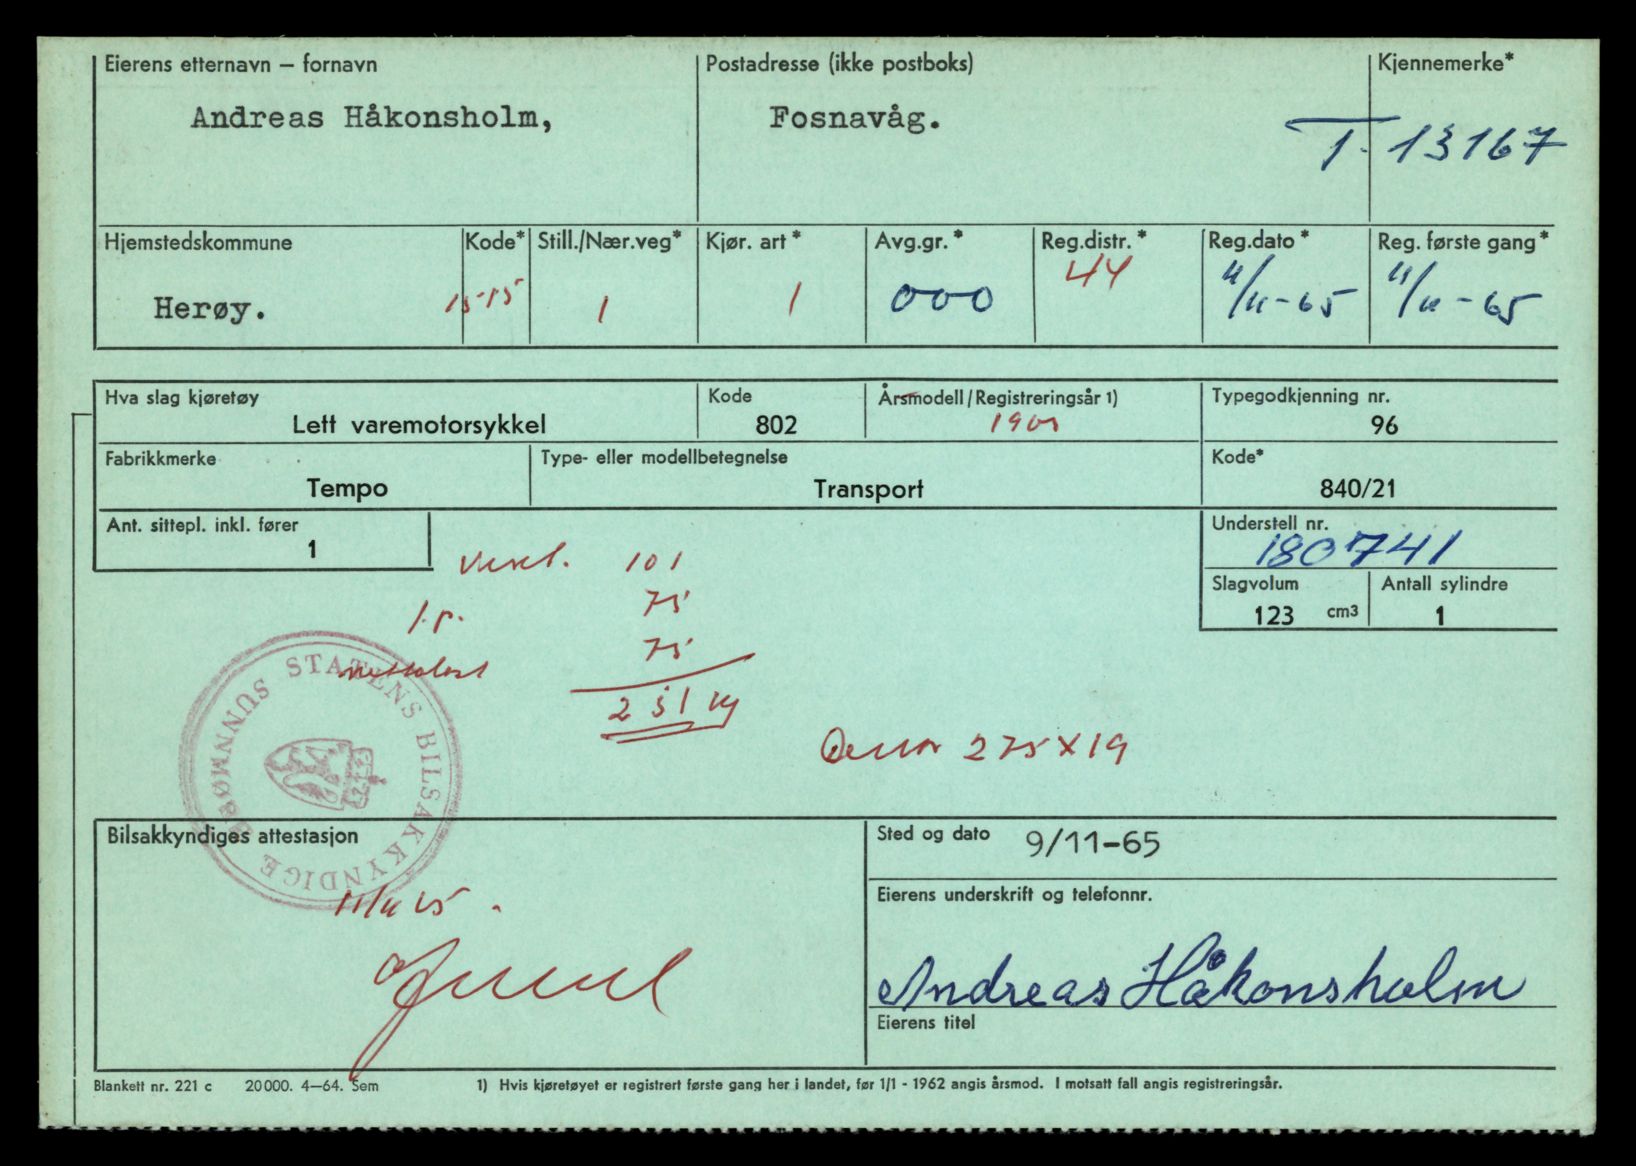 Eierens etternavn – fornavn
Andreas Håkonsholm,
Postadresse (ikke postboks)
Fosnavåg.
Kjennemerke*
T-13167
Hjemstedskommune
Herøy.
Kode*
1515
Still./Nær.veg*
1
Kjør. art*
1
Avg.gr.*
000
Reg.distr.*
44
Reg.dato*
11/11-65
Reg. første gang*
11/11-65
Hva slag kjøretøy
Lett varemotorsykkel
Kode
802
Årsmodell/Registreringsår 1)
1965
Typegodkjenning nr.
96
Fabrikkmerke
Tempo
Type- eller modellbetegnelse
Transport
Kode*
840/21
Ant. sittepl. inkl. fører
1
Understell nr.
180741
Slagvolum
123 cm3
Antall sylindre
1
Vekt. 101
1.p. 75
nettolast 75
251 kg
275 x 19
STATENS BILSAKKYNDIGE SUNNMØRE
Bilsakkyndiges attestasjon
11/11 65.
Sted og dato
9/11-65
Eierens underskrift og telefonnr.
Andreas Håkonsholm
Eierens titel
Blankett nr. 221 c 20000. 4–64. Sem
1) Hvis kjøretøyet er registrert første gang her i landet, før 1/1 - 1962 angis årsmod. I motsatt fall angis registreringsår.